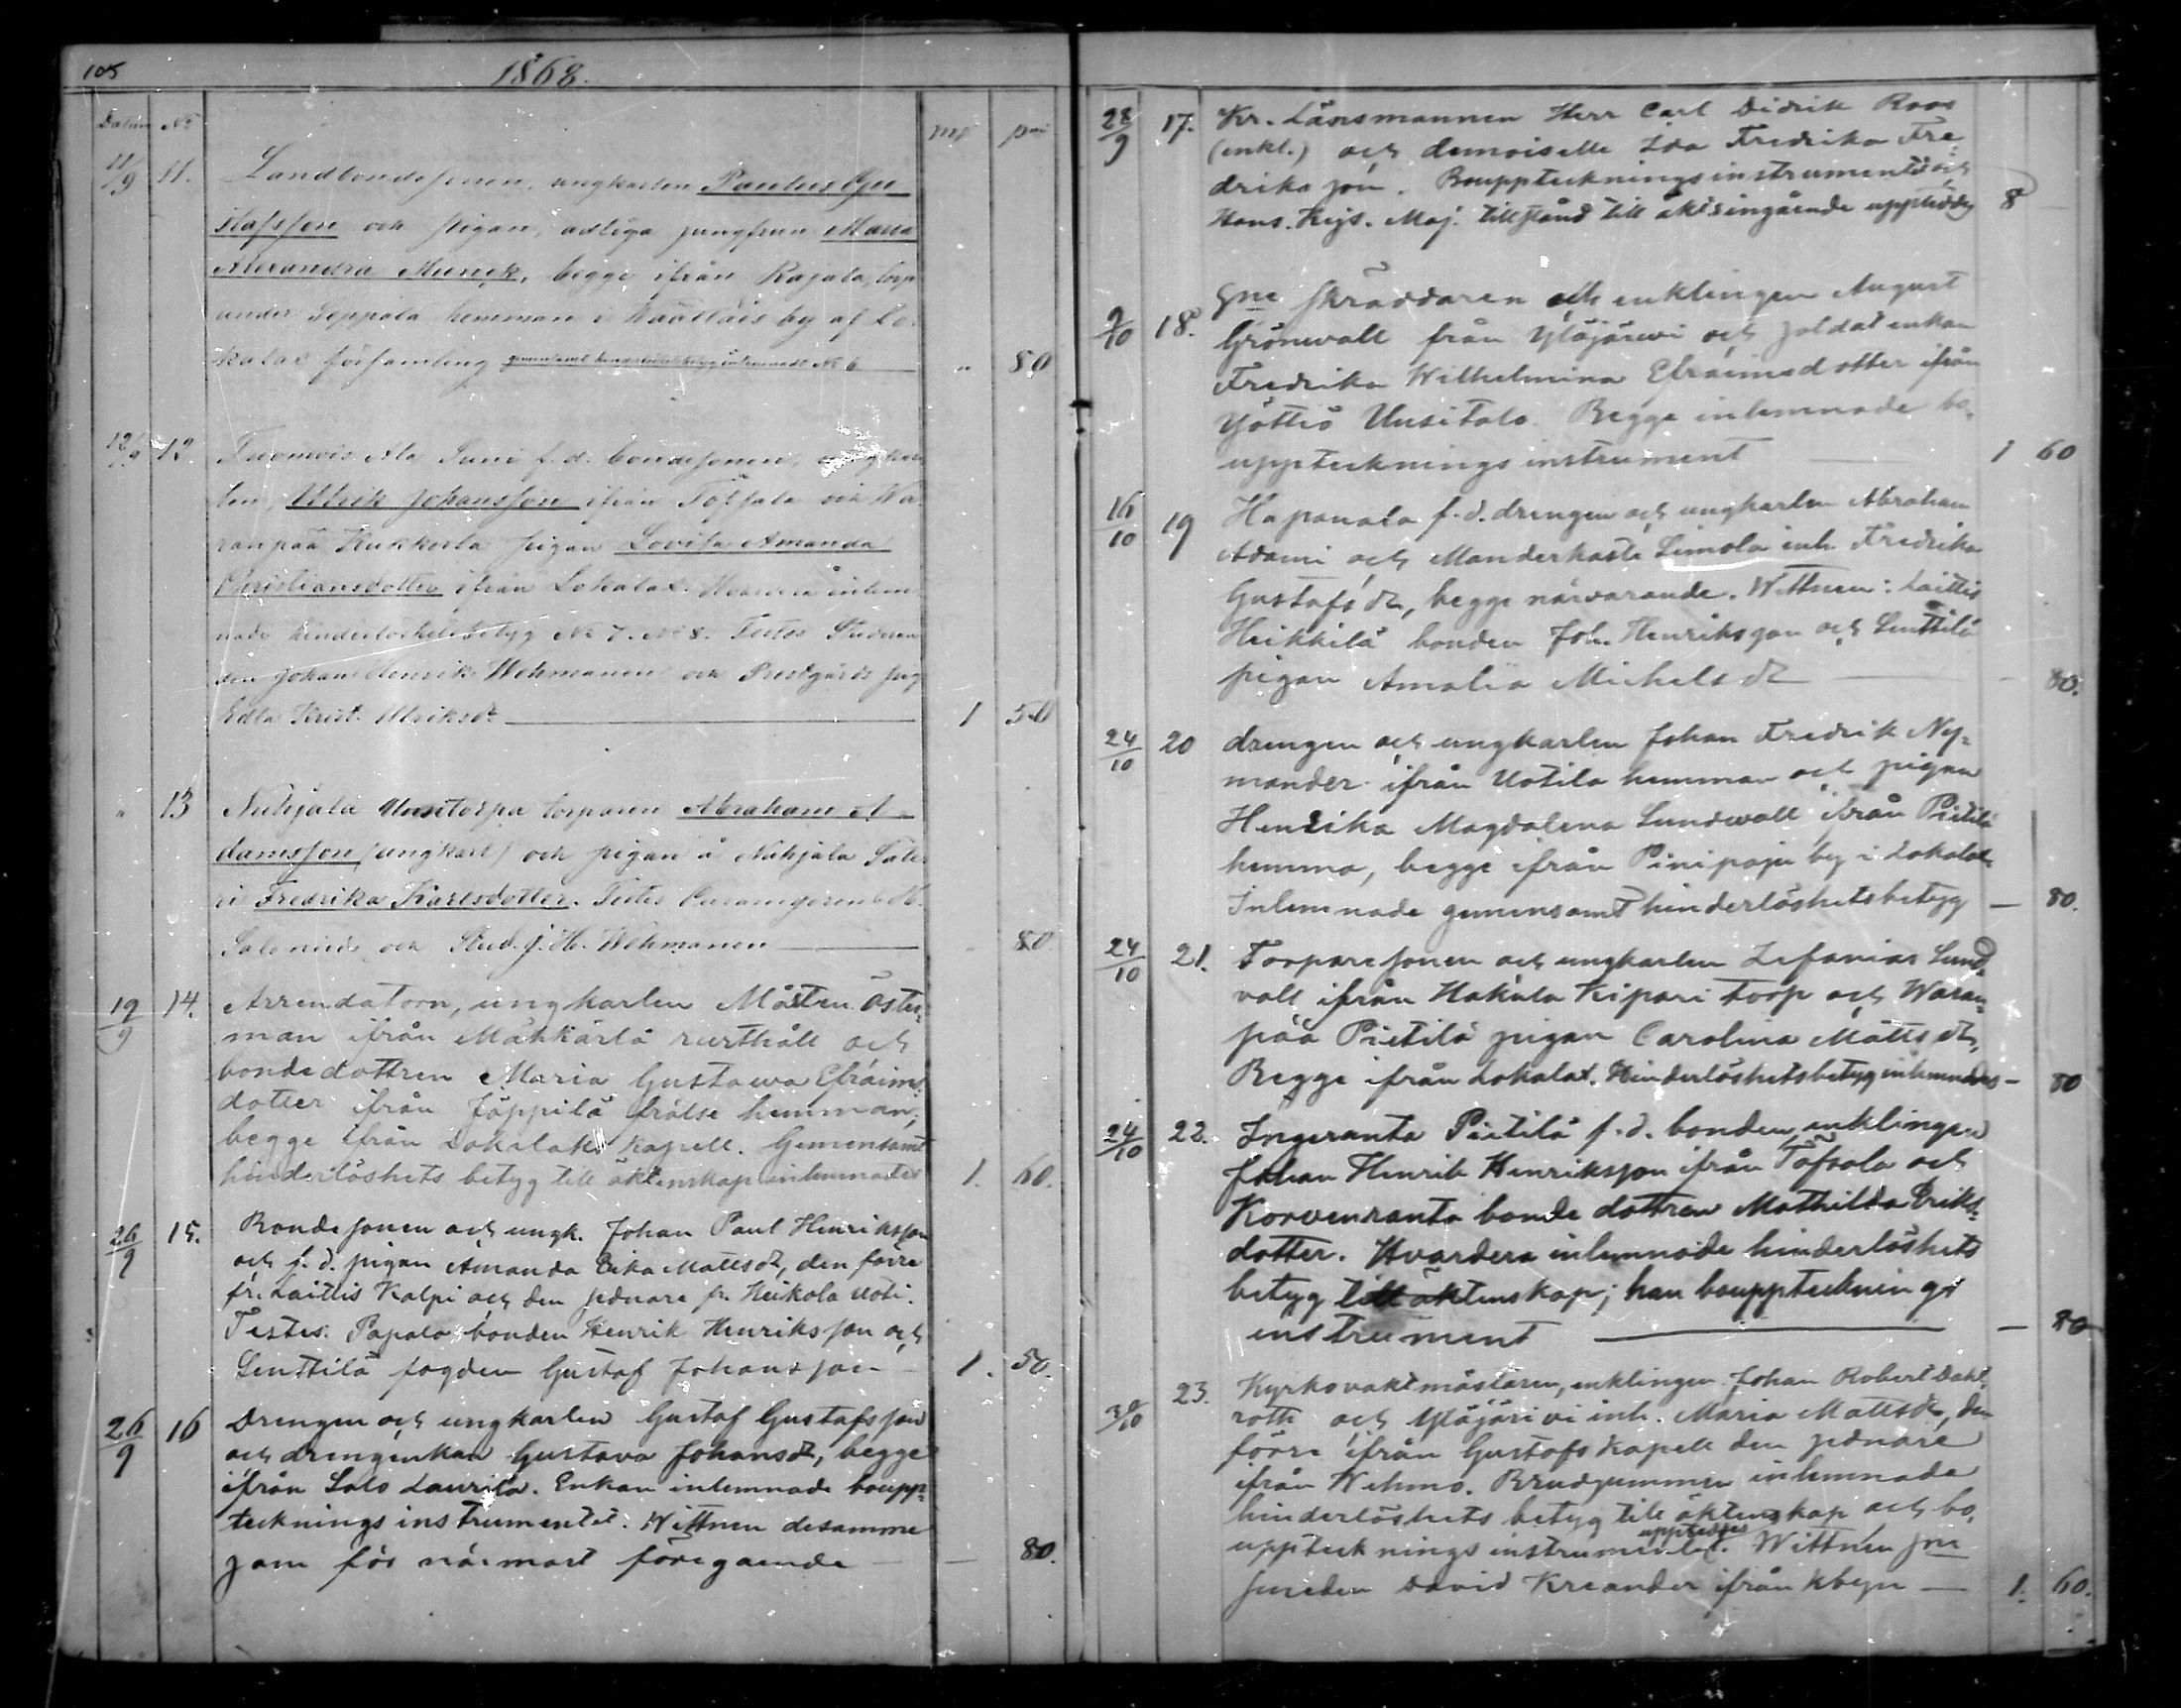 105
1868.
Datum No mk pni
11/9 11. Landbondesonen, ungkarlen Paulus Gu
stafsson och pigan, adliga jungfrun Maria
Alexandra Munck, begge ifrån Rajala torp
under Seppälä hemman i by af Lo
kalax församling gemensamt hinderlöshetsbetyg inlemnadt No 6 " 80
12/9 12. Tuomois Ala Suni f.d. bondesonen, ungkar
len, Ulrik Johansson ifrån Töfsala och Wa
ranpää Kukkola pigan Lovisa Amanda
Christiansdotter ifrån Lokalax. Hvardera inlem
nade hinderlöshetsbetyg No 7. No 8. Testes Studeran
den Johan Henrik Wehmanen och Prestgårds pig
Edla Krist. Ulriksdr 1 50
" 13 Nuhjala Uusitorpa torparen Abraham A-
damsson (ungkarl) och pigan å Nuhjala Säte
ri Fredrika Karlsdotter. Testes
Salonius och Stud. J. H. Wehmanen 80
19/9 14. Arrendatorn, ungkarlen Mårten Öster-
man ifrån Mähkärlä rusthåll och
bondedottren Maria Gustawa Efraims-
dotter ifrån Jäppilä frälse hemman,
begge ifrån Lokalaks kapell. Gemensamt
hinderlöshets betyg till äktenskap inlemnades 1. 60.
26/9 15. Bondesonen och ungk. Johan Paul Henriksson
och f.d. pigan Amanda Erika Mattsdr, den förre
fr. Laittis Kalpi och den sednare fr. Heikola Uoti.
Testes. Papala bonden Henrik Henriksson och
Senttilä fogden Gustaf Johansson 1. 50.
26/9 16 Drengen och ungkarlen Gustaf Gustafsson
och drengenkan Gustava Johansdr, begge
ifrån Salo Laurila. Enkan inlemnade boupp-
teckningsinstrumentet. Wittnen desamme
som för närmast föregående — 80.
28/9 17. Kr. Länsmannen Herr Carl Didrik Roos
(enkl.) och demoiselle Ida Fredrika Fre-
drikson. Bouppteckningsinstrumentet och
Hans. Kejs. Maj. tillstånd till äkt:s ingående uppteddes 8
9/10 18. Gne skräddaren och enklingen August
Grönwall från Yläjärwi och soldatenkan
Fredrika Wilhelmina Efraimsdotter ifrån
Yöttiö Uusitalo. Begge inlemnade bo-
uppteckningsinstrument 1 60
16/10 19 Hapanala f.d. drengen och ungkarlen Abraham
Adami och Manderkasti Simola inh. Fredrika
Gustafsdr, begge närvarande. Wittnen: Laittis
Heikkilä bonden Joh. Henriksson och Senttilä
pigan Amalia Michelsdr — 80.
24/10 20 drengen och ungkarlen Johan Fredrik Ny-
mander ifrån Uotila hemman och pigan
Henrika Magdalena Sundwall ifrån Pietilä
hemma, begge ifrån Pinipaju by i Lokalak
Inlemnade gemensamt hinderlöshetsbetyg — 80.
24/10 21. Torparesonen och ungkarlen Zefanias Sund-
vall ifrån Hakala Kipari torp och Waran-
pää Pietilä pigan Carolina Mattsdr,
Begge ifrån Lokalax. Hinderlöshetsbetyg inlemnades — 80
24/10 22. Ingeranta Pietilä f.d. bonden, enklingen
Johan Henrik Henriksson ifrån Töfsala och
Korvenranta bonde dottren Mathilda Eriks-
dotter. Hvardera inlemnade hinderlöshets
betyg till äktenskap; han bouppteckningsi
instrument — 80
30/10 23. Kyrkovaktmästaren, enklingen Johan Robert Dahl
roth och Yläjärivi inh. Maria Mattsdr, den
förre ifrån Gustafs kapell den sednare
ifrån Wehmo. Brudgummen inlemnade
hinderlöshets betyg till äktenskap och bo-
uppteckningsinstrumentet uppteddes. Wittnen
smeden David Kreander ifrån Kbyn — 1. 60.